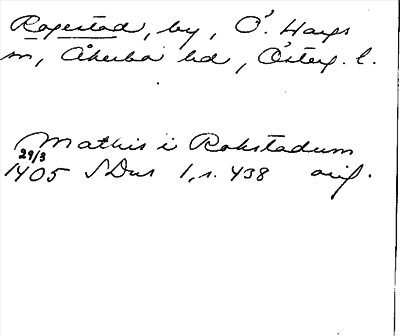 Rogestad, by, Ö. Hargs
sn, Åkerbo hd, Österg. l.
Mathis i Rokstadum
29/3
1405 SDns 1, s. 438 orig.